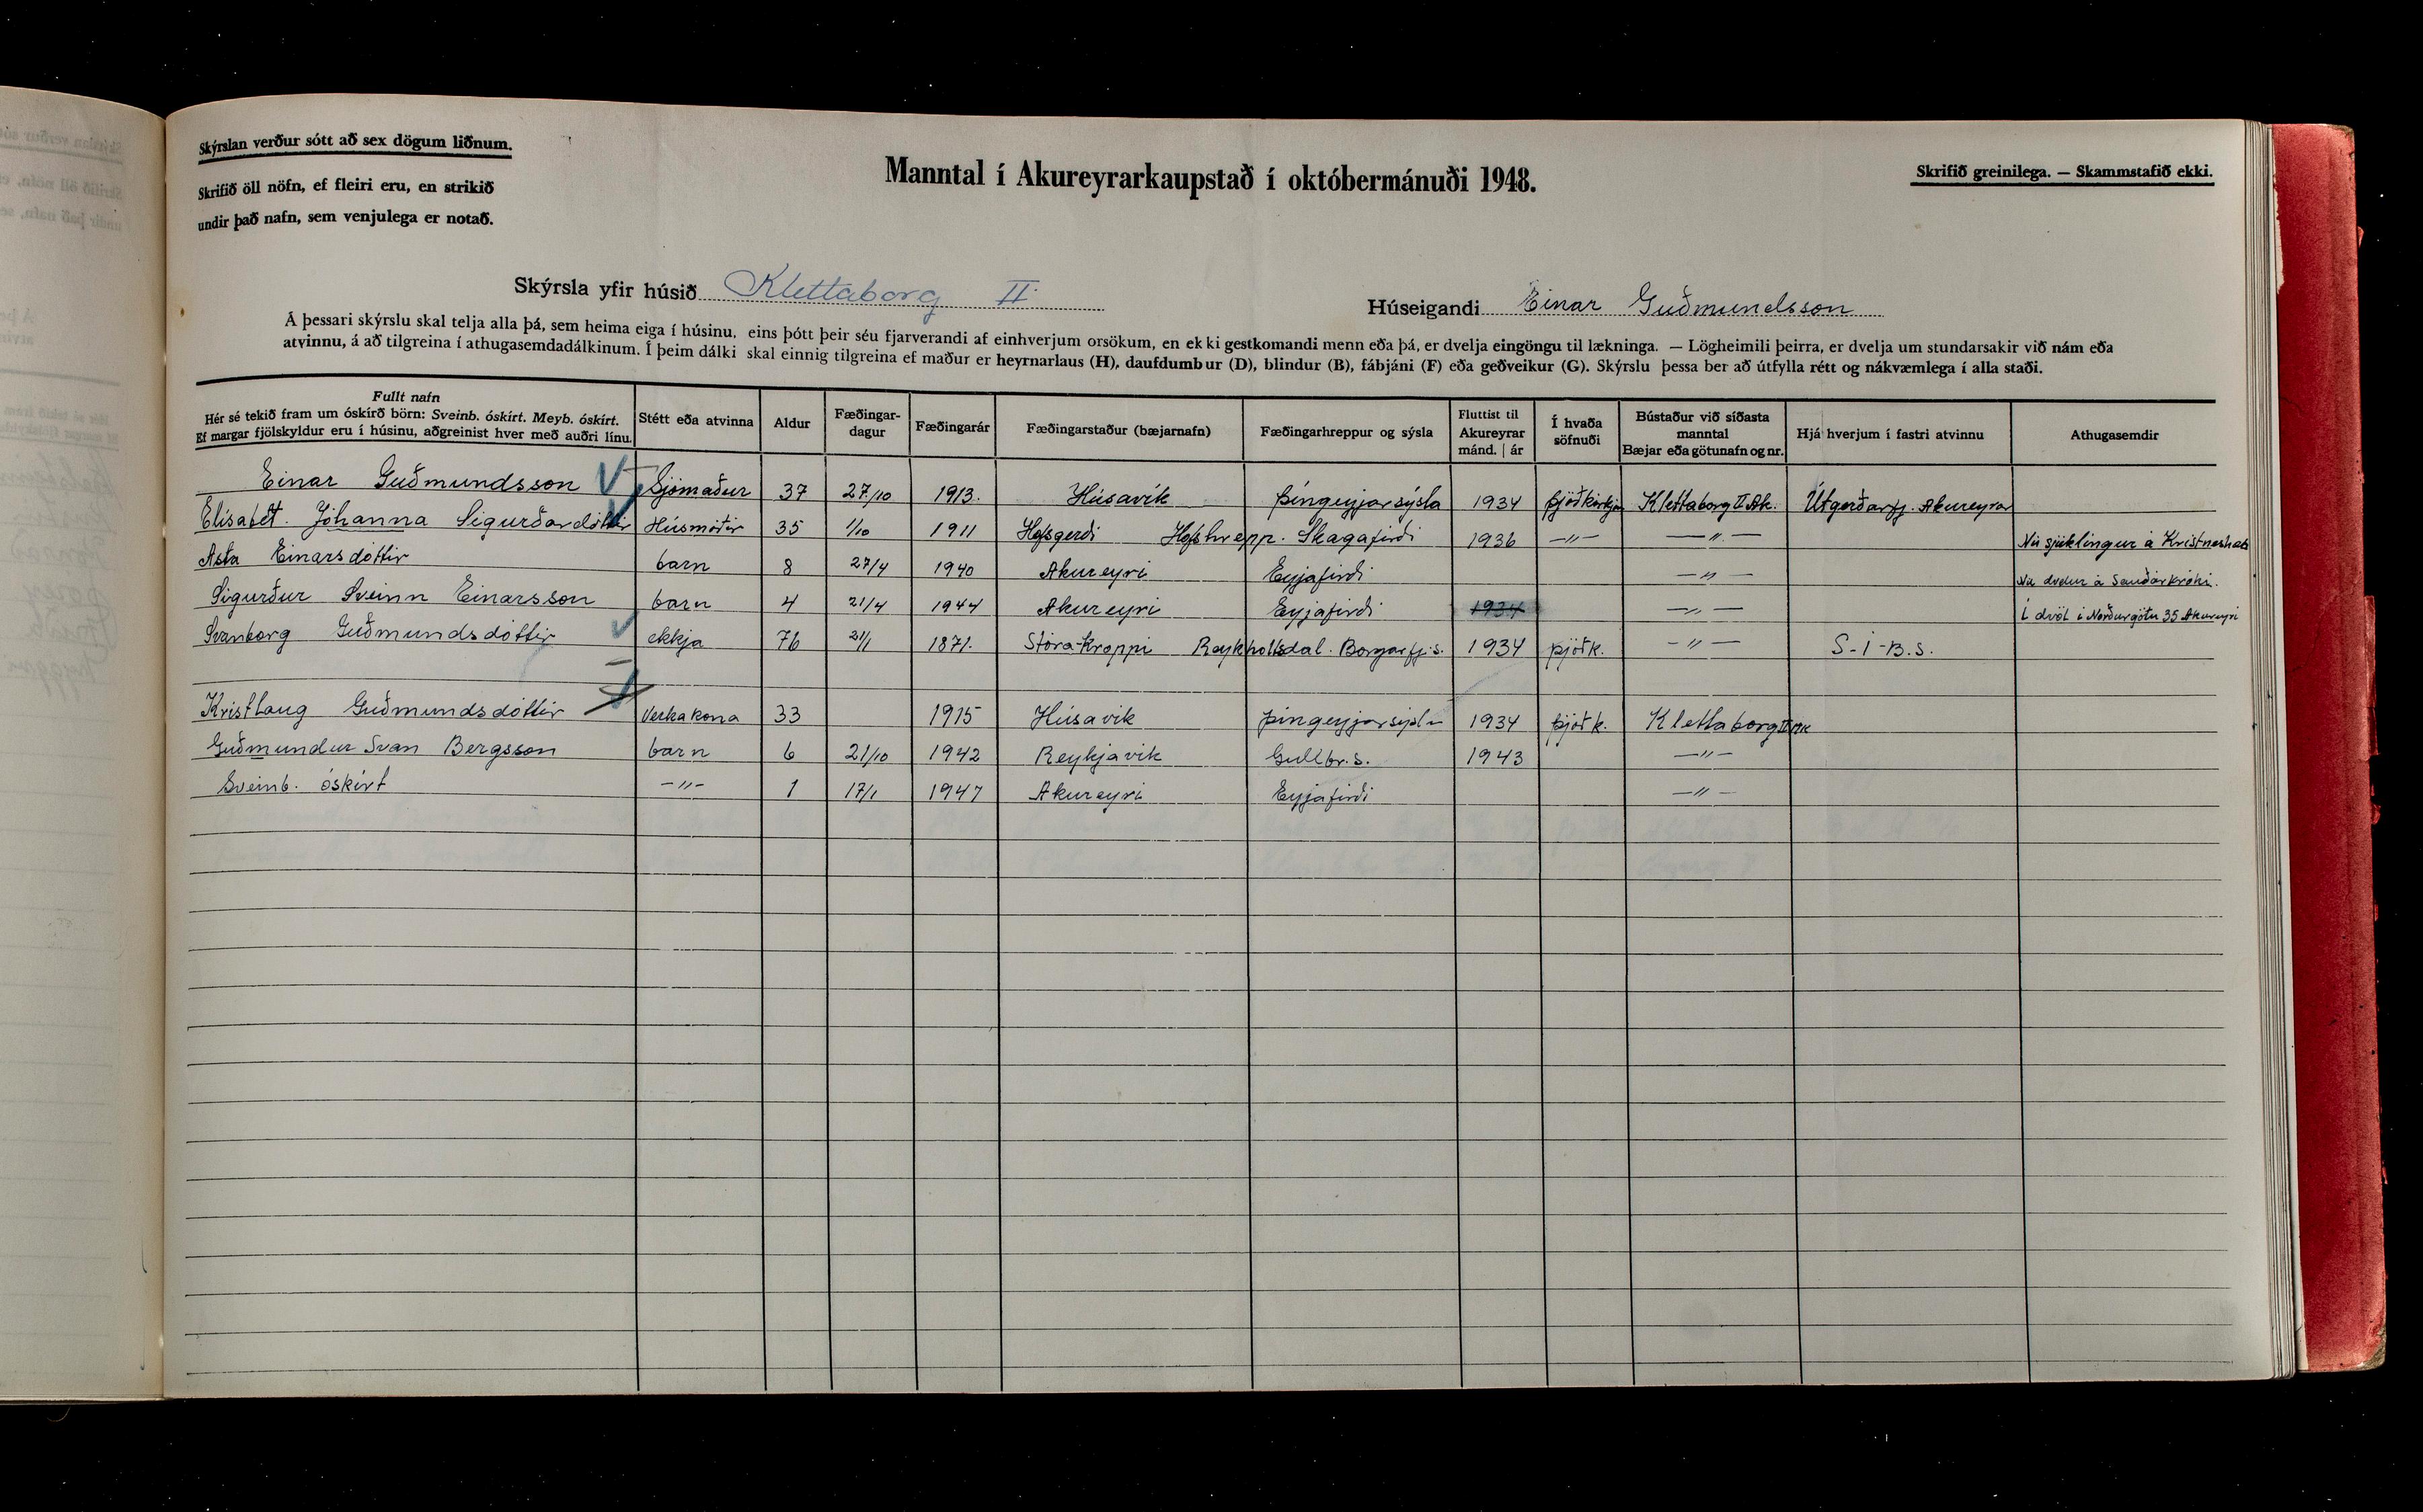 Skýrslan verður sótt að sex dögum liðnum.
Skrifið öll nöfn, ef fleiri eru, en strikið
undir það nafn, sem venjulega er notað.
Manntal í Akureyrarkaupstað í októbermánuði 1948.
Skrifið greinilega. — Skammstafið ekki.
Skýrsla yfir húsið Klettaborg II
Húseigandi Einar Guðmundsson
Á þessari skýrslu skal telja alla þá, sem heima eiga í húsinu, eins þótt þeir séu fjarverandi af einhverjum orsökum, en ekki gestkomandi menn eða þá, er dvelja eingöngu til lækninga. — Lögheimili þeirra, er dvelja um stundarsakir við nám eða
atvinnu, á að tilgreina í athugasemdadálkinum. Í þeim dálki skal einnig tilgreina ef maður er heyrnarlaus (H), daufdumbur (D), blindur (B), fábjáni (F) eða geðveikur (G). Skýrslu þessa ber að útfylla rétt og nákvæmlega í alla staði.
Fullt nafn
Hér sé tekið fram um óskírð börn: Sveinb. óskírt. Meyb. óskírt.
Ef margar fjölskyldur eru í húsinu, aðgreinist hver með auðri línu.
Stétt eða atvinna
Aldur
Fæðingar-
dagur
Fæðingarár
Fæðingarstaður (bæjarnafn)
Fæðingarhreppur og sýsla
Fluttist til
Akureyrar
mánd. | ár
Í hvaða
söfnuði
Bústaður við síðasta
manntal
Bæjar eða götunafn og nr.
Hjá hverjum í fastri atvinnu
Athugasemdir
Einar Guðmundsson Sjómaður 37 27/10 1913. Húsavík Þingeyjarsýsla 1934 Þjóðkirkju Klettaborg II Ak. Útgerðarfj. Akureyrar
Elísabet. Jóhanna Sigurðardóttir Húsmóðir 35 1/10 1911 Hofsgerði Hofshrepp. Skagafirði 1936 —〃— —〃— Nú sjúklingur á Kristneshæli
Asta Einarsdóttir barn 8 27/4 1940 Akureyri Eyjafirði —〃— Nú dvelur á Sauðárkróki.
Sigurður Sveinn Einarsson barn 4 21/4 1944 Akureyri Eyjafirði 1934 —〃— Í dvöl í Norðurgötu 35 Akureyri
Svanborg Guðmundsdóttir ekkja 76 21/1 1871. Stóra-Kroppi Reykholtsdal. Borgarfj.s. 1934 Þjóðk. —〃— S-Í-B.S.
Kristlaug Guðmundsdóttir Verkakona 33 1915 Húsavík Þingeyjarsýslu 1934 Þjóðk. Klettaborg II Ak
Guðmundur Svan Bergsson barn 6 21/10 1942 Reykjavík Gullbr.s. 1943 —〃—
Sveinb. óskírt —〃— 1 17/1 1947 Akureyri Eyjafirði —〃—